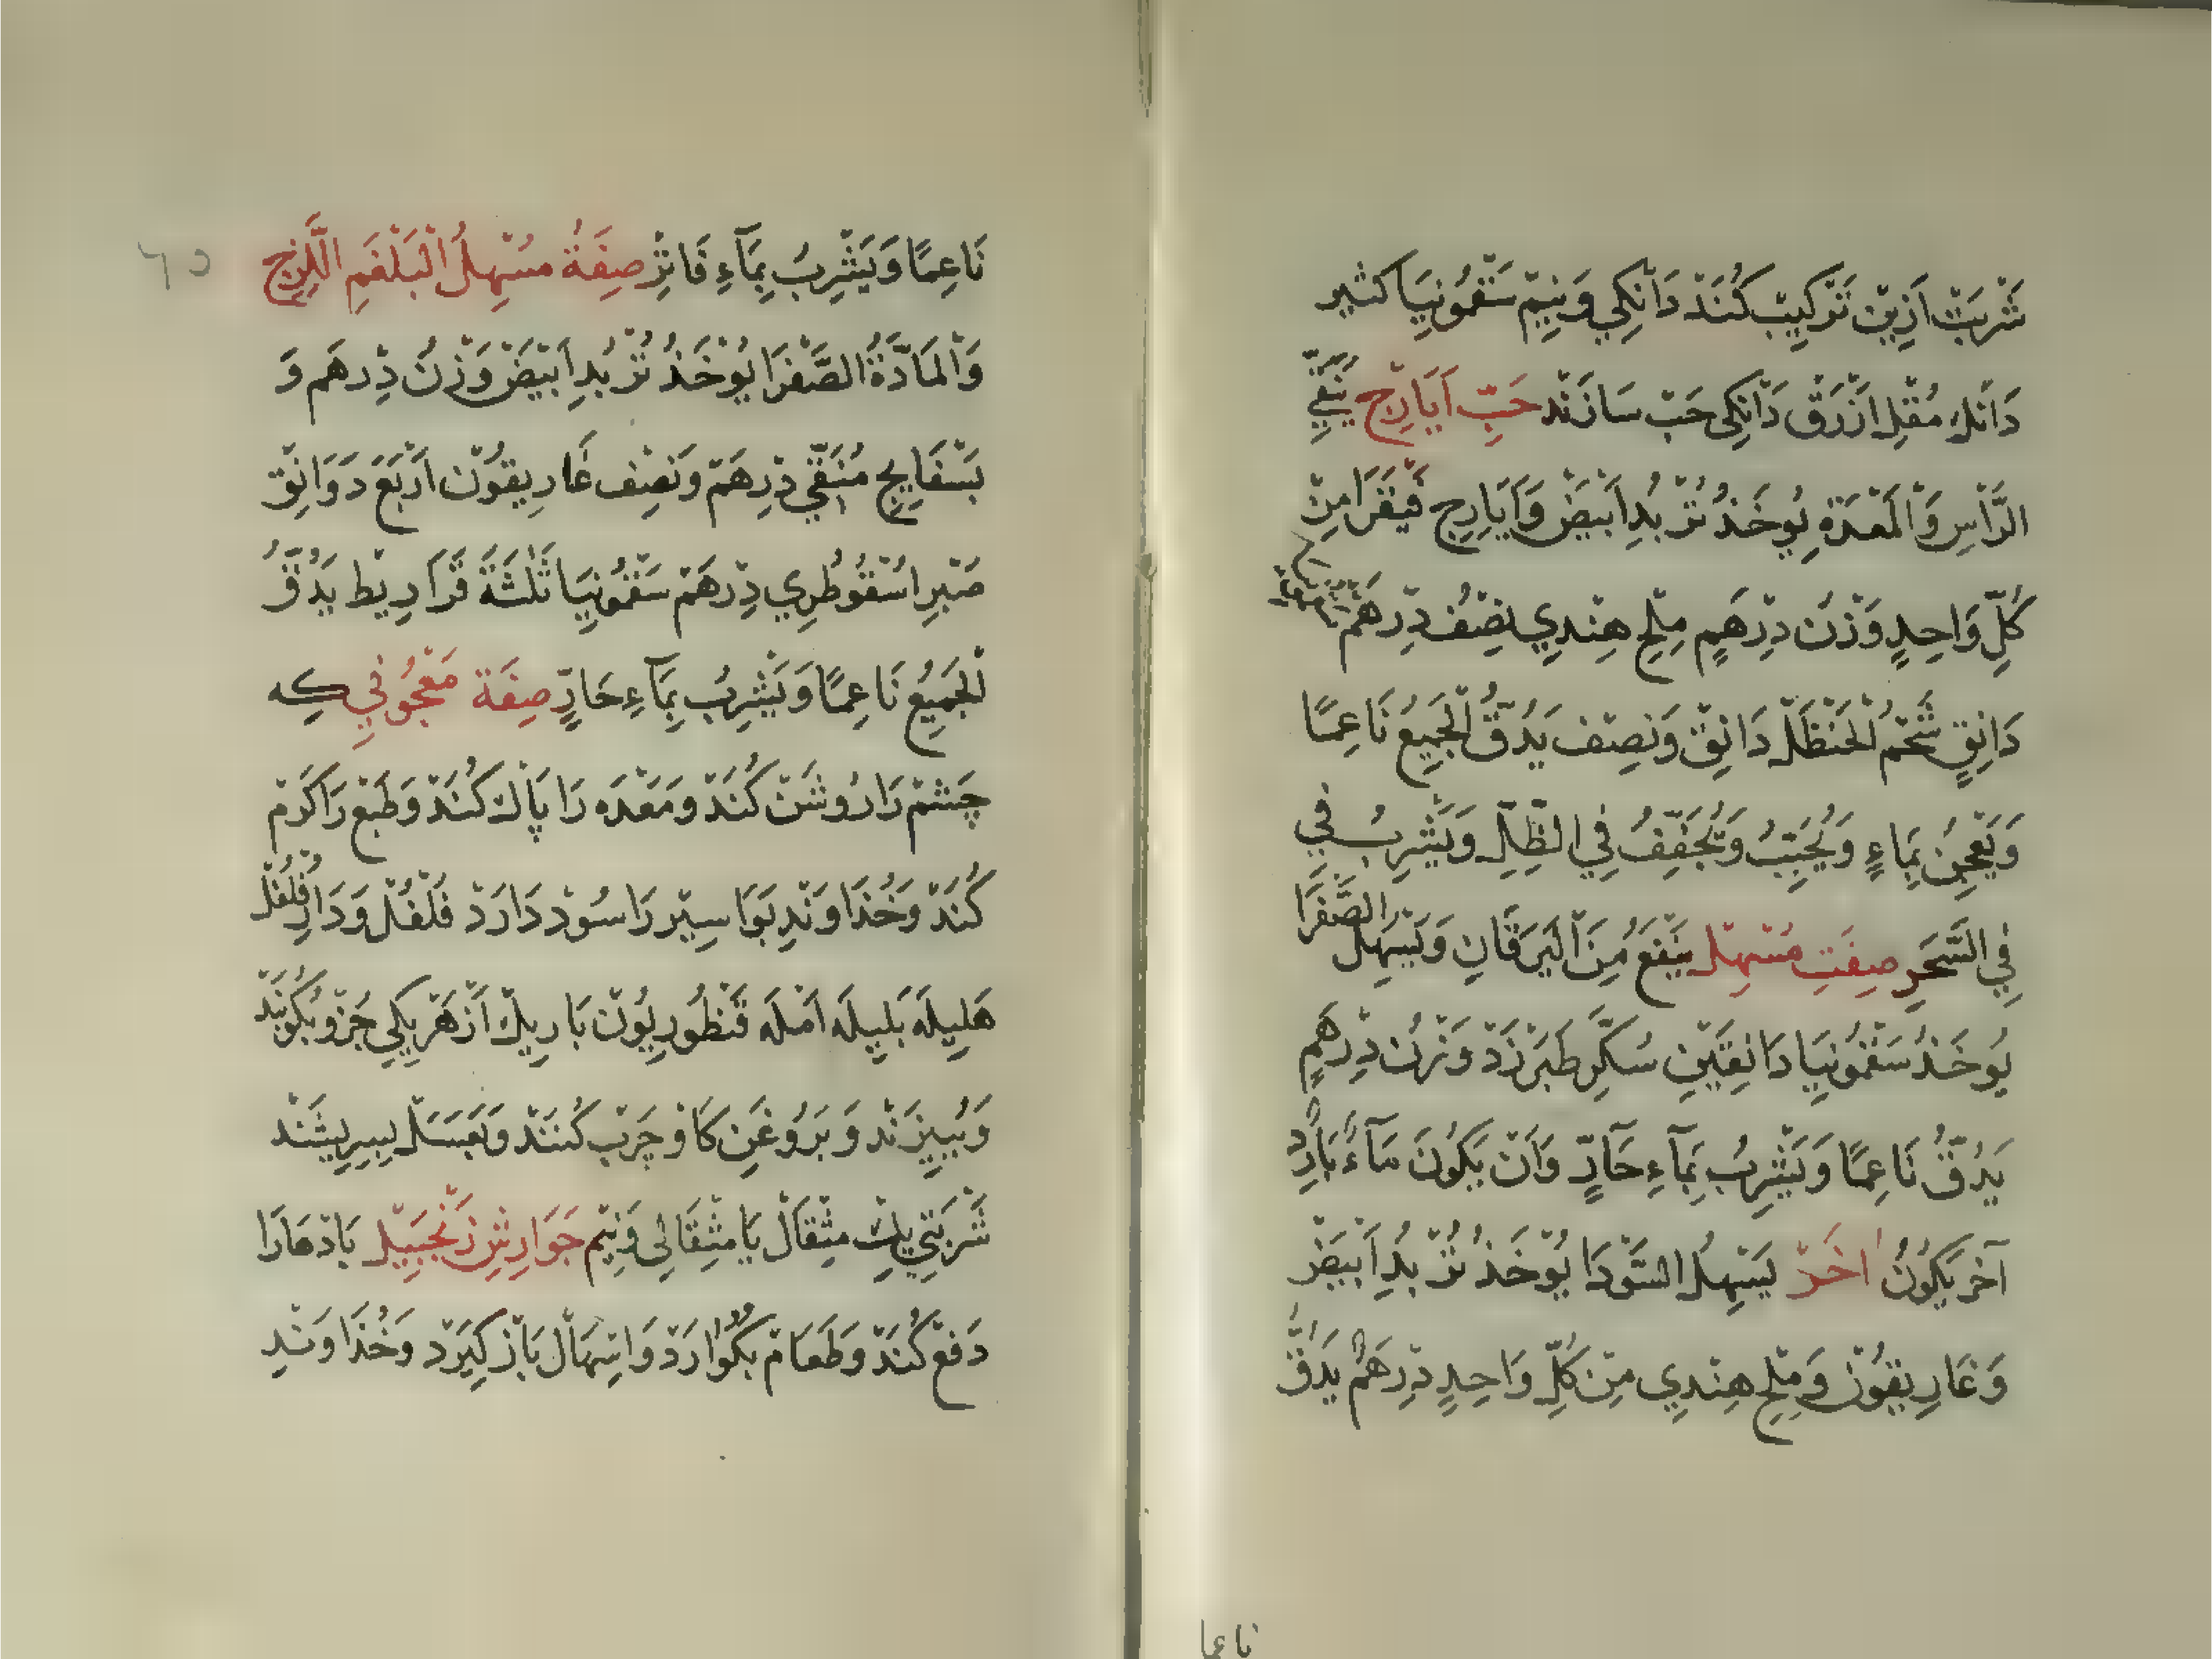 شَرْبَتْ اَزِیْن تَرْکِیبْ کُنَدْ دَانْکِي وَنِیمْ سَقْمُونِيَا كثير
دَانك مُقْلِ اَزْرَقْ دَانْكِی حَبْ سَازَنْد حَبِّ اَيَارِج يُنَقِّي
الرَّأْسِ وَالْمَعِدَةِ يُوخَذُ تُرْبُدِ اَبْيَضْ وَاَيَارِج فَيْقَرَا مِنْ
كُلِّ وَاحِدٍ وَزْنَ دِرْهَمٍ مِلْحِ هِنْدِي نِصْف دِرْهَمْ
دَانِقٍ شَحْمُ الْحَنْظَلْ دَانِقْ وَنِصْف يَدُقُّ الْجَمِيعُ نَاعِمًا
وَيَعْجِنُ بِمَاءٍ وَيُحَبِّبُ وَيُجَفِّفُ فِي الظِّلِّ وَيَشْرِبُ فِي
فِي السَّحَرِ صِفَتِ مُسْهِل يَنْفَعُ مِنَ الْيَرَقَانِ وَيَسْهِلُ الصَّفْرَا
يُوخَذُ سَقْمُونِيَا دَانِقَيْنِ سُكَّرِ طَبَرْزَدْ وَزْنَ دِرْهَمٍ
يَدُقُّ نَاعِمًا وَيَشْرِبُ بِمَآءِ حَآرٍّ وَاَنْ يَكُونَ مَآءً بَارِدًا
آخر يَكُونُ اخَرْ يَسْهِلُ السَّوْدَا يُوْخَذُ تُرْبُدِ اَبْيَضْ
وَغَارِيقُونْ وَمِلْحِ هِنْدِي مِنْ كُلِّ وَاحِدٍ دِرْهَمْ يَدُقُّ
ناعما
٦٥
نَاعِمًا وَيَشْرِبُ بِمَآءِ فَاتِرْ صِفَةُ مسْهِلُ الْبَلْغَمِ اللَّزِج
وَالْمَادَّةُ الصَّفْرَا يُوْخَذُ تُرْبُدِ اَبْيَضْ وَزْنَ دِرْهَم وَ
بَسْفَايِج مُنَقّي دِرْهَمْ وَنِصْف غَارِيقُوْن اَرْبَعَ دَوَانِقْ
صَبْرِ اسْقُوطُرِي دِرْهَمْ سَقْمُونِيَا ثَلٰثَةَ قَرَارِيط يَدُقُّ
الْجَمِيْعُ نَاعِمًا وَيَشْرِبُ بِمَآءِ حَارٍّ صِفَة مَعْجُونِي كِه
چَشْمْ رَا رُوشَنْ كُنَدْ ومَعْدَه رَا پَاك كُنَدْ وَطَبْع رَا كَرَمْ
كُنَدْ وَخُذَاوَنْدِ بَوَاسِيْر رَا سُوْد دَارَدْ فُلْفُلْ وَدَارِفُلْفُلْ
هَلِيلَه بَلِيلَه امْلَه قَنْطُورِيُوْن بَارِيك اَزْ هَرْيَكِي جُزْو بِكُوبَنْد
وَبِيزَنْد وَبَرُوغَنِ كَاوْ چَرْب كُنَنْدْ وَبَعَسَلْ بِسِرِيشَنْد
شَرْبَتِي يك مثِقَالْ يَا مثِقَالِى وَنِيْم جَوَارِشِ زَنْجَبِيْل بَادْهَارَا
دَفْع كُنَدْ وَطَعَامْ بكُوَارَدْ وَاسْهَالْ بَازْ كِيرَدْ وَخُذَاوَنْدِ